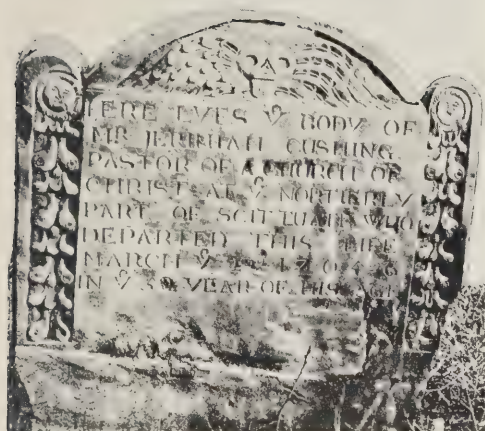 HERE LYES Yᵉ BODY OF
MR JEREMIAH CUSHING
PASTOR OF A CHURCH OF
CHRIST AT Yᵉ NORTHERLY
PART OF SCITTUATE WHO
DEPARTED THIS LIFE
MARCH Yᵉ
IN Yᵉ YEAR OF HIS AGE